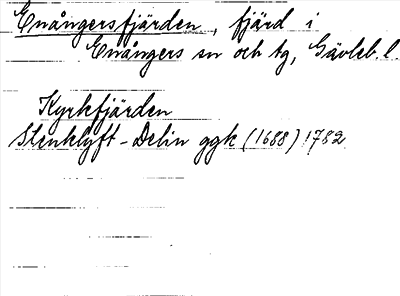 Enångersfjärden, fjärd i
Enångers sn och tg, Gävleb. l.
Kyrkfjärden
Stenklyft-Delin ggk (1688) 1782